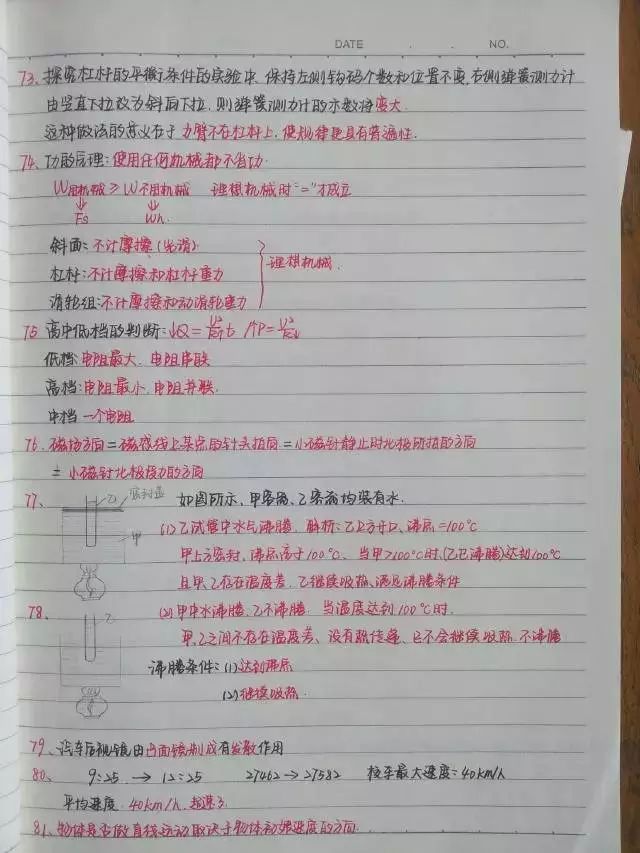 DATE . . NO.
73. 探究杠杆的平衡条件的实验中, 保持左侧钩码个数和位置不变, 右侧弹簧测力计
由竖直下拉改为斜向下拉, 则弹簧测力计的示数将变大.
这种做法的意义在于力臂不在杠杆上, 使规律更具有普遍性.
74. 功的原理: 使用任何机械都不省功.
W用机械 ≥ W不用机械 理想机械时"="才成立
↓ ↓
Fs Wh.
斜面: 不计摩擦 (光滑)
杠杆: 不计摩擦和杠杆重力
滑轮组: 不计摩擦和动滑轮重力
理想机械.
75 高中低档的判断: ↓Q = U²/R↑ t ↑P = U²/R↓
低档: 电阻最大, 电阻串联
高档: 电阻最小, 电阻并联.
中档 一个电阻
76. 磁场方向 = 磁感线上某点的箭头指向 = 小磁针静止时北极所指的方向
= 小磁针北极受力的方向
77. 乙 密封盖 如图所示, 甲容器, 乙容器均装有水.
甲
(1) 乙试管中水先沸腾. 解析: 乙上方开口, 沸点 = 100℃
甲上方密封, 沸点高于100℃. 当甲>100℃时, (乙已沸腾)达到100℃
且甲、乙存在温度差, 乙继续吸热, 满足沸腾条件
78. 乙 (2) 甲中水沸腾, 乙不沸腾. 当温度达到100℃时.
甲、乙之间不存在温度差, 没有热传递, 乙不会继续吸热, 不沸腾
沸腾条件: (1) 达到沸点
(2) 继续吸热.
79、汽车后视镜由凸面镜制成有发散作用
80. 9:25 → 12:25 27462 → 27582 校车最大速度 = 40km/h
平均速度 40km/h, 超速了.
81、物体是否做直线运动取决于物体初始速度的方向.